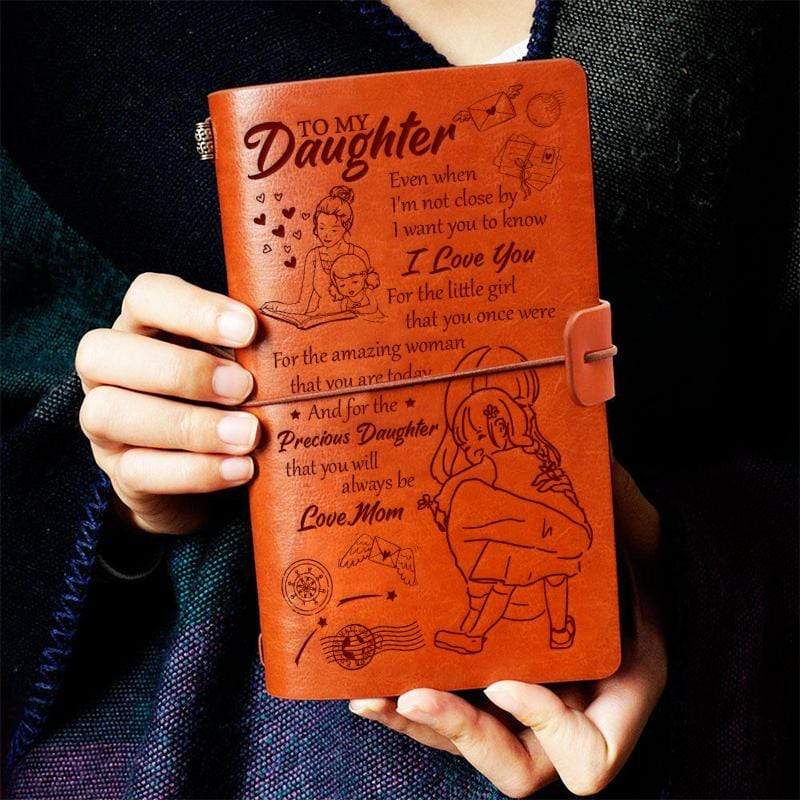 TO MY
Daughter
Even when
I'm not close by
I want you to know
I Love You
For the little girl
that you once were
For the amazing woman
that you are today
And for the
Precious Daughter
that you will
always be
Love, Mom